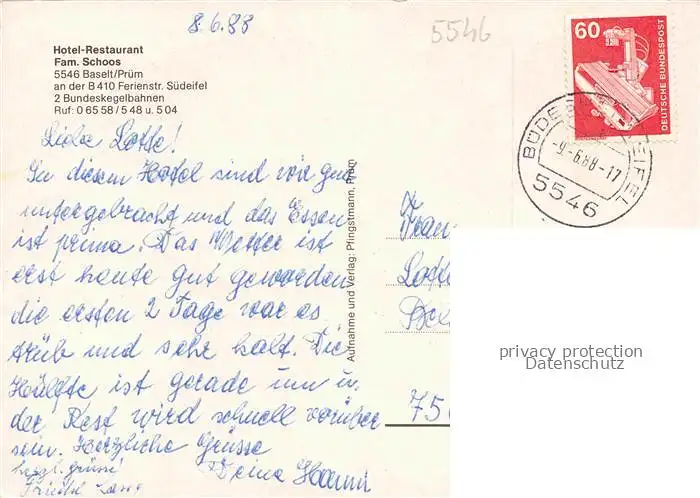 8.6.88
5546
Hotel-Restaurant
Fam. Schoos
5546 Baselt/Prüm
an der B 410 Ferienstr. Südeifel
2 Bundeskegelbahnen
Ruf: 0 65 58 / 5 48 u. 5 04
60
DEUTSCHE BUNDESPOST
-9.-6.88-17
5546
Liebe Lotte!
In diesem Hotel sind wir gut
untergebracht und das Essen
ist prima. Das Wetter ist
erst heute gut geworden
die ersten 2 Tage war es
trüb und sehr kalt. Die
Hälfte ist gerade um u.
der Rest wird schnell vorüber
sein. Herzliche Grüsse
Deine Hanni
herzl. Grüsse
Aufnahme und Verlag: Pfingstmann, Prüm
Frau
Lotte
75
privacy protection
Datenschutz